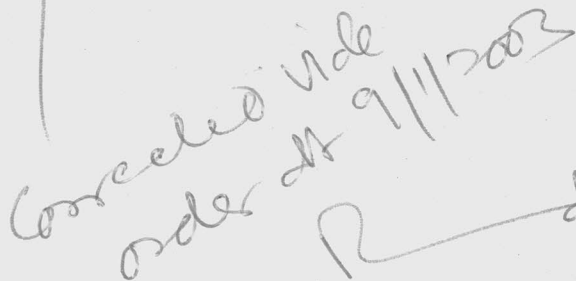 Corrected vide
order dt 9/1/2003